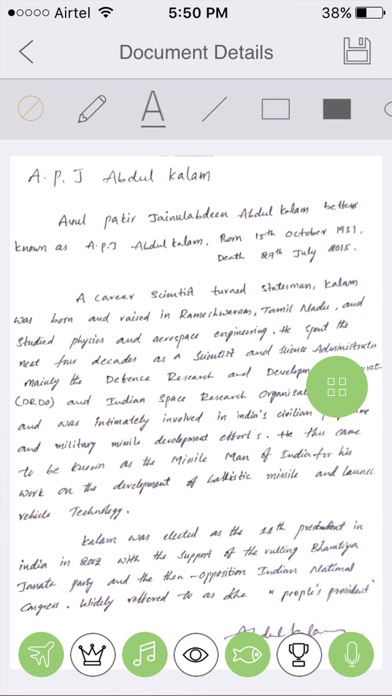 Airtel 5:50 PM 38%
Document Details
A
A.P.J Abdul Kalam
Avul pakir Jainulabdeen Abdul Kalam better
known as A.P.J Abdul Kalam, Born 15th October 1931.
Death 27th July 2015.
A career Scientist turned statesman, Kalam
was born and raised in Rameshwaram, Tamil Nadu, and
studied physics and aerospace engineering. He spent the
next four decades as a scientist and science Administrator
mainly the Defence Research and
(DRDO) and Indian Space Research
and was intimately involved in india's civilian
and military missile development efforts. He thus came
to be known as the Missile Man of India for his
work on the development of ballistic missile and launch
vehicle Technology.
Kalam was elected as the 11th president in
india in 2002 with the support of the rulling Bharatiya
Janata party and the then-opposition Indian National
Congress. Widely reffered to as the "people's president"
Abdul Kalam